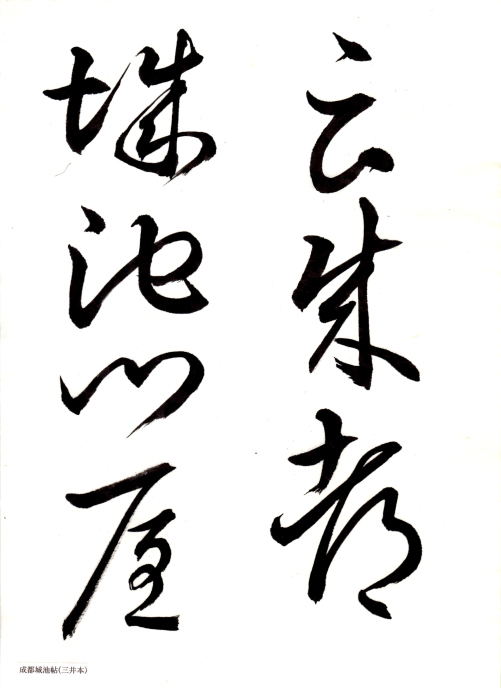 云成都
城池門屋
成都城池帖(三井本)